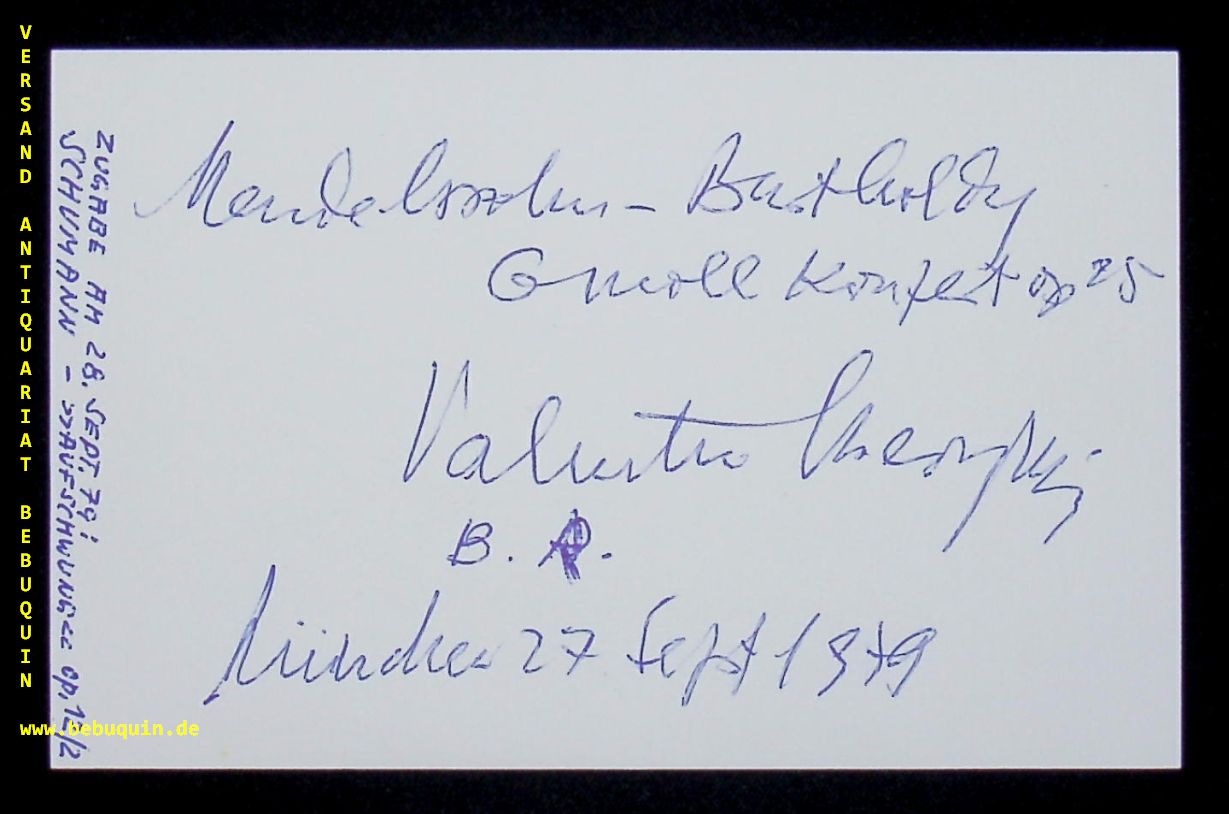 Mendelssohn - Bartholdy
G moll Konzert op 25
Valentin Gheorghiu
B.
München 27 Sept 1979
ZUGABE AM 28. SEPT. 79:
SCHUMANN - »AUFSCHWUNG« op. 12/2
VERSAND ANTIQUARIAT BEBUQUIN
www.bebuquin.de